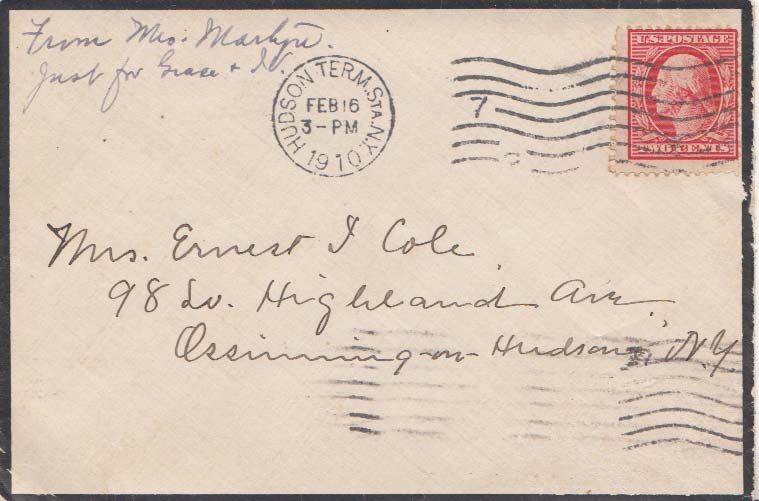 From Mrs. Martyn.
Just for Grace +
HUDSON TERM. STA. N.Y.
FEB 16
3-PM
1910
7
U.S. POSTAGE
TWO CENTS
Mrs. Ernest I Cole
98 So. Highland Ave.
Ossinning-on-Hudson, NY